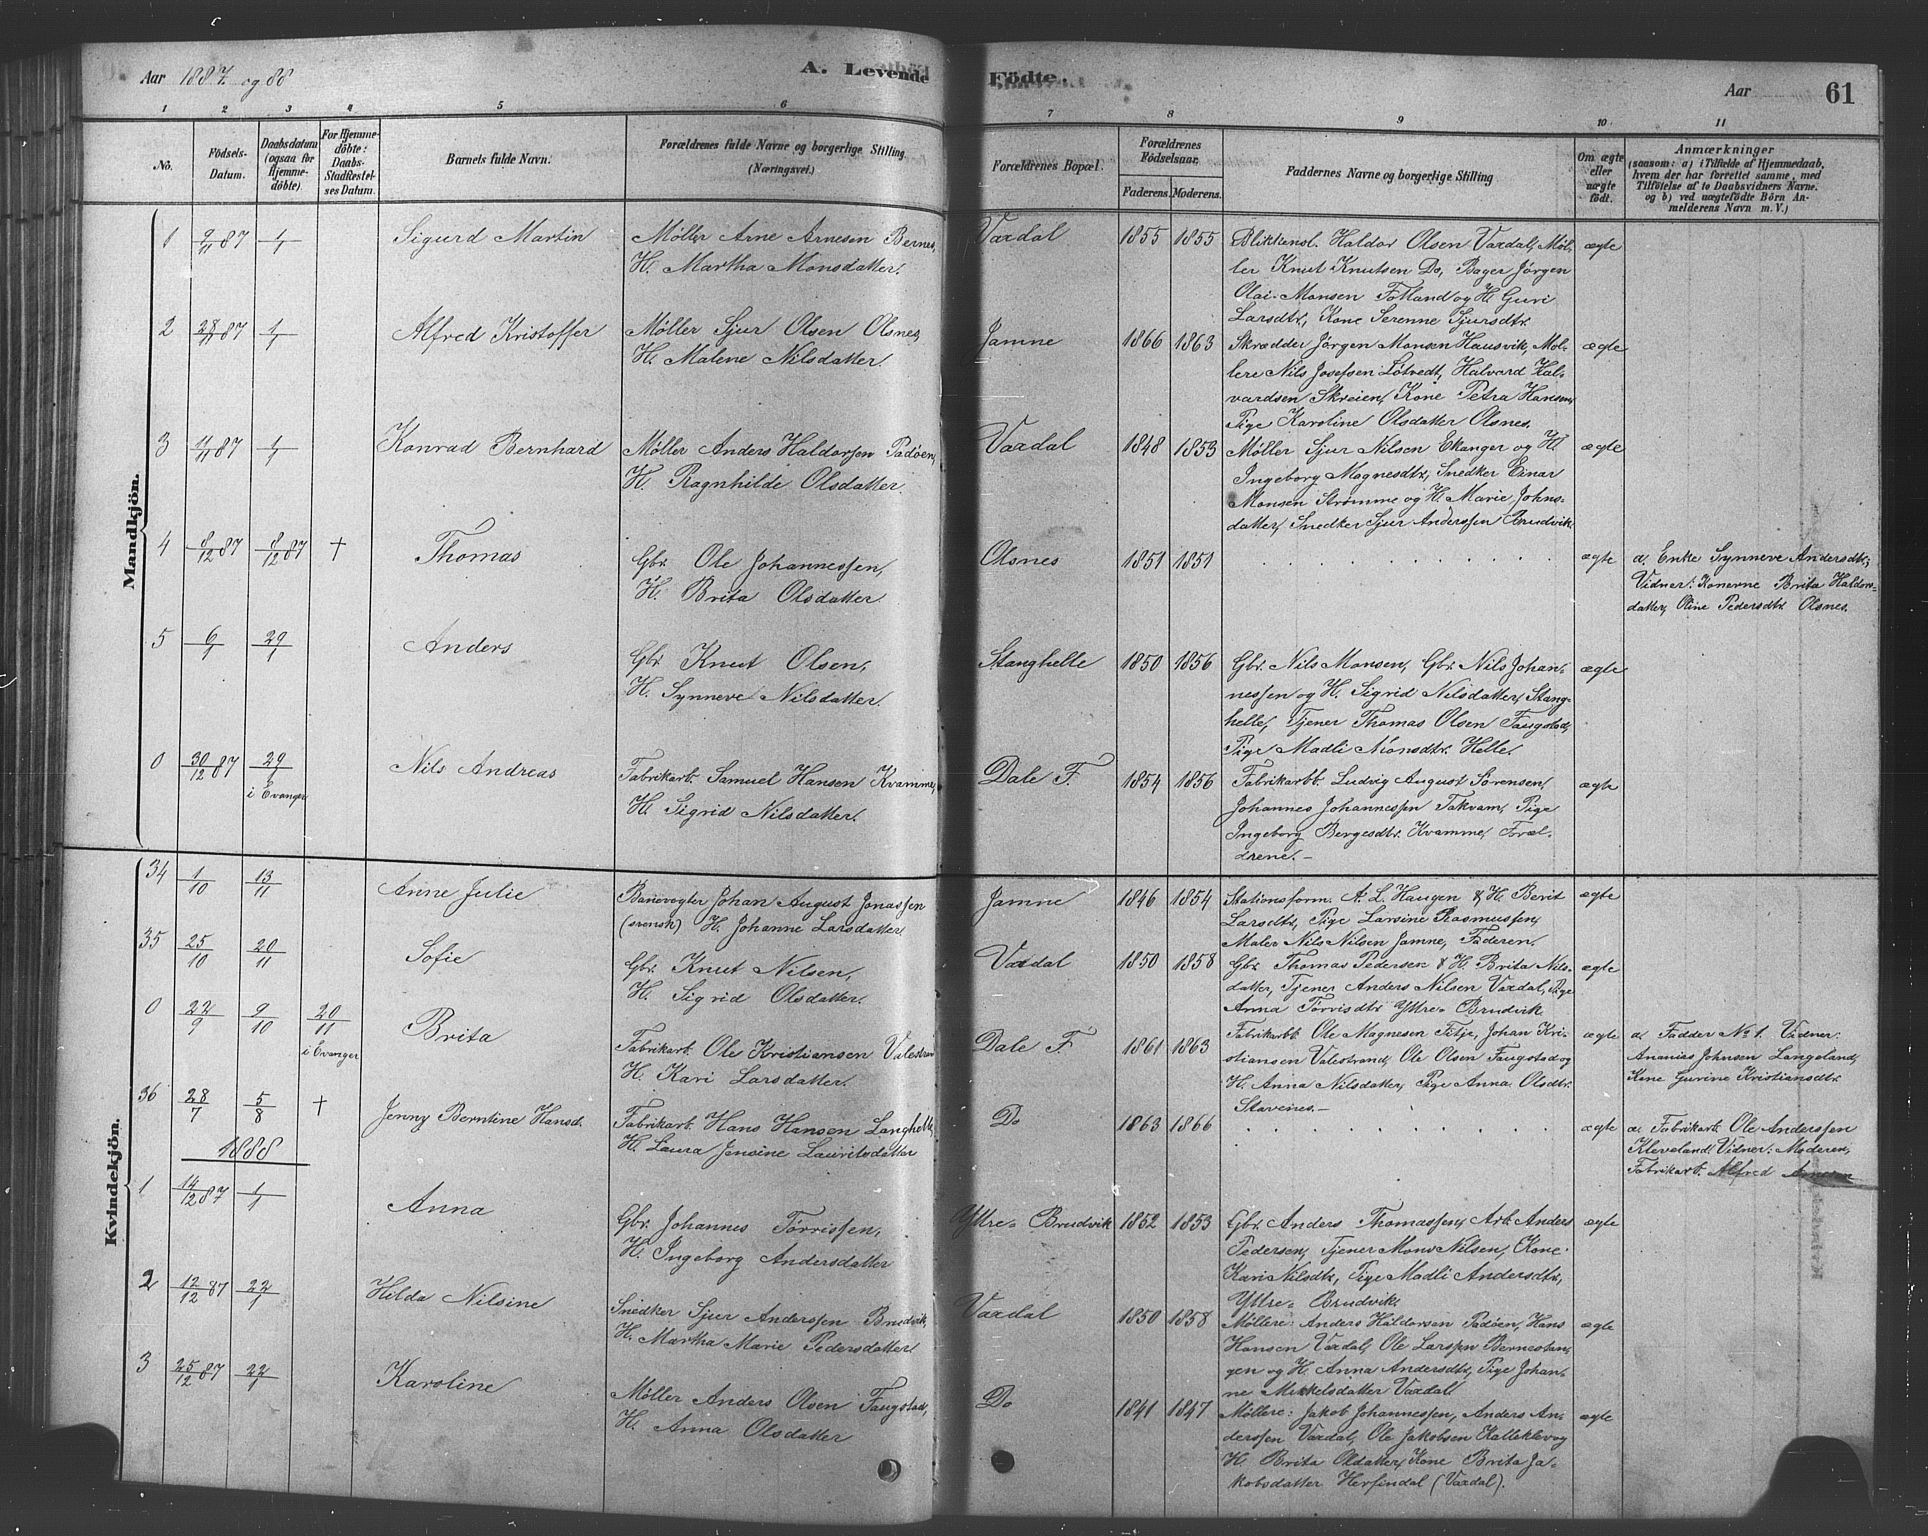 Aar 1887 og 88
A. Levende Födte.
Aar
61
1 2 3 4 5 6 7 8 9 10 11
No.
Födsels-Datum.
Daabsdatum (ogsaa for Hjemme-döbte).
For Hjemme-döbte: Daabs-Stadfestel-ses Datum.
Barnets fulde Navn.
Forældrenes fulde Navne og borgerlige Stilling (Næringsvei.)
Forældrenes Bopæl.
Forældrenes Födselsaar.
Faderens. Moderens.
Faddernes Navne og borgerlige Stilling
Om ægte eller uægte födt.
Anmærkninger
(saasom: a) i Tilfælde af Hjemmedaab, hvem der har forrettet samme, med Tilföielse af to Daabsvidners Navne. og b) ved uægtefödte Börn An-melderens Navn m. V.)
Mandkjön.
1 9/11 87 1/1 Sigurd Martin
Møller Arne Arnesen Bernes,
H. Martha Monsdatter.
Vaxdal 1855 1855
Bliktensl. Haldor Olsen Vaxdal, Møl-
ler Knut Knutsen Do, Bager Jørgen
Olai Monsen Fotland og H. Guri
Larsdtr, Kone Serenne Sjursdtr.
ægte
2 28/11 87 1/1 Alfred Kristoffer
Møller Sjur Olsen Olsnes,
H. Malene Nilsdatter.
Jamne 1866 1863
Skrædder Jörgen Monsen Hausvik, Møl-
lere Nils Josefsen Løtvedt, Halvard Hal-
vardsen Skreien, Kone Petra Hansen,
Pige Karoline Olsdatter Olsnes.
ægte
3 11/11 87 1/1 Konrad Bernhard
Møller Anders Haldorsen Padøen,
H. Ragnhilde Olsdatter.
Vaxdal 1848 1853
Møller Sjur Nilsen Ekanger og H.
Ingeborg Magnesdtr, Snedker Einar
Monsen Strømme og H. Marie Johns-
datter, Snedker Sjur Anderssen Brudvik.
ægte
4 8/12 87 8/12 87 † Thomas
Gbr. Ole Johannessen,
H. Brita Olsdatter.
Olsnes 1851 1851
ægte
a. Enke Synneve Andersdtr;
Vidner: Konerne Brita Haldors-
datter, Oline Pedersdtr. Olsnes.
5 6/1 29/1 Anders
Gbr. Knut Olsen,
H. Synneve Nilsdatter.
Stanghelle 1850 1856
Gbr. Nils Monsen, Gbr. Nils Johan-
nessen og H. Sigrid Nilsdatter, Stang-
helle, Tjener Thomas Olsen Faugstad,
Pige Madli Monsdtr. Helle.
ægte
0 30/12 87 29/1 i Evanger Nils Andreas
Fabrikarb. Samuel Hansen Kvamme,
H. Sigrid Nilsdatter.
Dale F. 1854 1856
Fabrikarbb. Ludvig August Sørensen,
Johannes Johannessen Takvam, Pige
Ingeborg Bergesdtr. Kvamme, Foræl-
drene.
ægte
Kvindekjön.
34 1/10 13/11 Anne Julie
Banevogter Johan August Jonassen
(svensk) H. Johanne Larsdatter
Jamne 1846 1854
Stationsform. A. L. Haugen & H. Berit
Larsdtr, Pige Larsine Rasmussen,
Maler Nils Nilsen Jamne, Faderen.
ægte
35 25/10 20/11 Sofie
Gbr. Knut Nilsen,
H. Sigrid Olsdatter.
Vaxdal 1850 1858
Gbr. Thomas Pedersen & H. Brita Nils-
datter, Tjener Anders Nilsen Vaxdal, Pige
Anna Torrisdtr Yttre-Brudvik.
ægte
0 22/9 9/10 20/11 i Evanger Brita
Fabrikarb. Ole Kristiansen Valestrand
H. Kari Larsdatter.
Dale F. 1861 1863
Fabrikarbb. Ole Magnesen Fitje, Johan Kri-
stiansen Valestrand, Ole Olsen Faugstad og
H. Anna Nilsdatter, Pige Anna Olsdtr.
Stavenes.
ægte
a. Fadder No 1. Vidner:
Ananias Johnsen Langeland,
Kone Gurine Kristiansdtr.
36 28/7 5/8 † Jenny Berntine Hansd.
Fabrikarb. Hans Hansen Langhelle,
H. Laura Jensine Lauritsdatter
Do 1863 1866
ægte
a. Fabrikarb. Ole Anderssen
Kleveland. Vidner: Moderen,
Fabrikarb. Alfred
1888
1 14/12 87 1/1 Anna
Gbr. Johannes Torrissen,
H. Ingeborg Andersdatter
Yttre-Brudvik 1852 1853
Gbr. Anders Thomassen, Arb. Anders
Pedersen, Tjener Mons Nilsen, Kone
Kari Nilsdtr, Pige Madli Andersdtr,
Yttre-Brudvik.
ægte
2 12/12 87 22/1 Hilda Nilsine
Snedker Sjur Anderssen Brudvik,
H. Martha Marie Pedersdatter.
Vaxdal 1850 1858
Møllere: Anders Haldorsen Padøen, Hans
Hansen Vaxdal, Ole Larssen Bernestan-
gen og H. Anna Andersdtr, Pige Johan-
ne Mikkelsdatter Vaxdal.
ægte
3 25/12 87 22/1 Karoline
Møller Anders Olsen Faugstad,
H. Anna Olsdatter
Do 1841 1847
Møllere: Jakob Johannessen, Anders An-
derssen Vaxdal, Ole Jakobsen Kalleklev og
H. Brita Oldatter, Kone Brita Ja-
kobsdatter Herfindal (Vaxdal).
ægte